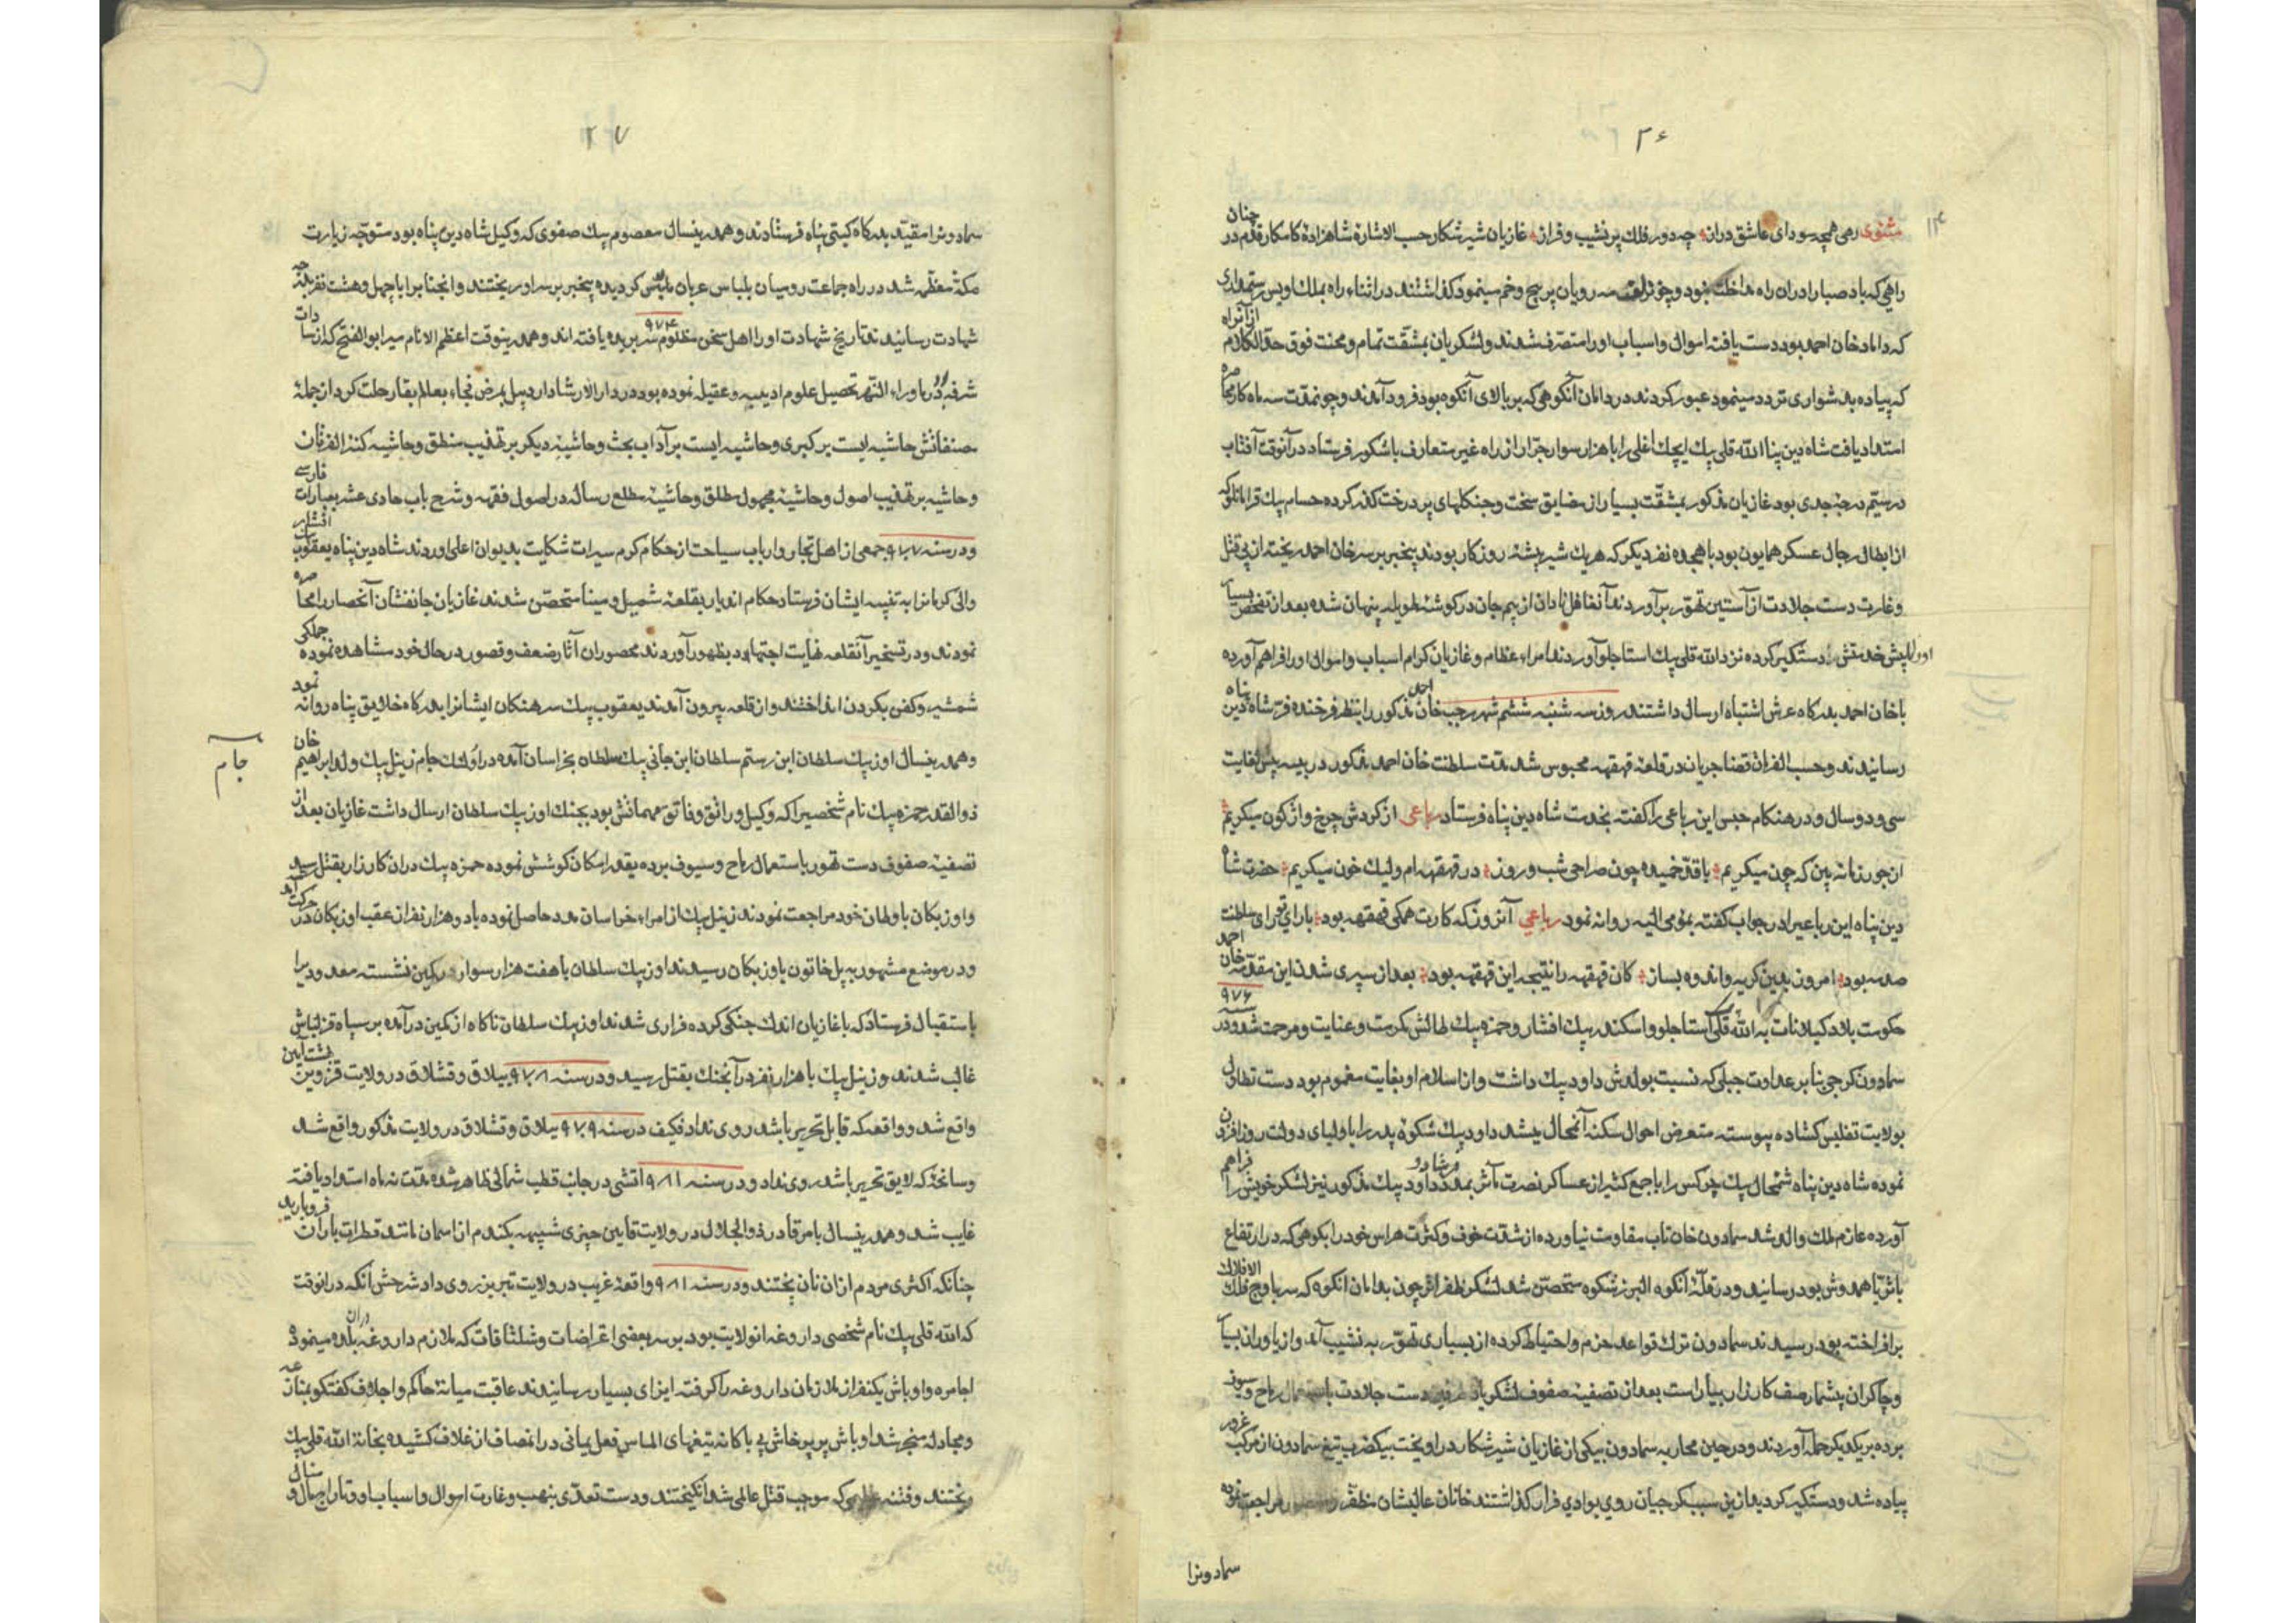 ۲۶
مثنوی رهی همچو سودای عاشق دراز چه دور فلک پر نشیب و فراز غازیان شیر شکار حسب الاشارهٔ شاهزادهٔ کامکار قدم در چنان
راهی که باد صبا را دران راه مداخلت نبود و چو زلف مه رویان پر پیچ و خم مینمود گذاشتند در اثناء راه بملک اویس رستمداری
که داماد خان احمد بود دست یافته اموال و اسباب او را متصرف شدند و لشکریان بمشقت تمام و محنت فوق حد الکلام از آنراه
که پیاده بدشواری تردد مینمود عبور کردند در دامان آنکوهی که بر بالای آنکوه بود فرود آمدند و چو نمدت سه ماه کار محاصره
امتداد یافت شاه دین پناه الله قلی بیک ایچک اغلی را با هزار سوار جرار از راه غیر متعارف باشکور فرستاد در آنوقت آفتاب
در بیستم درجهٔ جدی بود غازیان مذکور بمشقت بسیار از مضایق سخت و جنکلهای پر درخت کذر کرده حسام بیک قرامانلو که
از ابطال رجال عسکر همایون بود با هیجده نفر دیکر که هر یک شیر بیشهٔ روزکار بودند بیخبر بر سر خان احمد ریخته از پی قتل
و غارت دست جلادت از آستین تهور بر آوردند آنغافل نادان از بیم جان در کوشهٔ طویله پنهان شده بعد از تفحص بسیار
او را پیش خدمتش دستکیر کرده نزد الله قلی بیک استاجلو آوردند امراء عظام و غازیان کرام اسباب و اموال او را فراهم آورده
با خان احمد بدرکاه عرش اشتباه ارسال داشتند روز سه شنبه ششم شهر رجب خان احمد مذکور را بنظر فرخنده فر شاه دین پناه
رسانیدند و حسب الفرمان قضا جریان در قلعهٔ قهقهه محبوس شد مدت سلطنت خان احمد مذکور در بیه پس لغایت
سی و دو سال و در هنکام حبس این رباعی را کفته بخدمت شاه دین پناه فرستاد رباعی از کردش چرخ واژکون میکریم
از جور زمانه بین که چون میکریم با قد خمیده چون صراحی شب و روز در قهقهه ام ولیک خون میکریم حضرت شاه
دین پناه این رباعیرا در جواب کفته بمومی الیه روانه نمود رباعی آنروز که کارت همکی قهقهه بود با رای تو رای سلطنت
صد مه بود امروز بدین کریه و اندوه بساز کان قهقهه را نتیجه این قهقهه بود بعد از سپری شدن این مقدمه خان احمد
حکومت بلاد کیلانات به الله قلی استاجلو و اسکندر بیک افشار و حمزه بیک طالش مکرمت و عنایت و مرحمت شد و در سنه ۹۷۶
سمادون کرجی بنا بر عداوت جبلی که نسبت بولدش داود بیک داشت و از اسلام او بغایت مغموم بود دست تطاول
بولایت تفلیس کشاده پیوسته متعرض احوال سکنهٔ آنمحال میشد داود بیک شکوهٔ پدر را باولیای دولت روز افزون
نموده شاه دین پناه شمخال بیک چرکس را با جمع کثیر از عساکر نصرت مآثر بمدد داود فرستاد و داود بیک مذکور نیز لشکر خویش را فراهم
آورده عازم ملک والد شد سمادون خان تاب مقاومت نیاورده از شدت خوف و کثرت هراس خود را بکوهی که در ارتفاع
با ثریا همدوش بود رسانید و در قلهٔ آنکوه البرز شکوه متحصن شد لشکر ظفر اثر چون بدامان انکوه که سر باوج فلک الافلاک
بر افراخته بود رسیدند سمادون ترک قواعد حزم و احتیاط کرده از بسیاری تهور به نشیب آمد و از یاوران بسیار
و چاکران بیشمار صف کارزار بیاراست بعد از تصفیهٔ صفوف لشکریان طرفین دست جلادت باستعمال رماح و سیوف
برده بر یکدیکر حمله آوردند و در حین محاربه سمادون بیکی از غازیان شیر شکار در اویخت بیکضرب تیغ سمادون از مرکب غرور
پیاده شد و دستکیر کردید ازین سبب کرجیان روی بوادی فرار کذاشتند خانان عالیشان مظفر و منصور مراجعت نموده
سمادونرا
۲۷
سمادونرا مقید بدرکاه کیتی پناه فرستادند و همدرینسال معصوم بیک صفوی که وکیل شاه دین پناه بود متوجه زیارت
مکهٔ معظمه شد در راه جماعت رومیان بلباس عربان ملبس کردیده بیخبر بر سر او ریختند و انجنابرا با چهل و هشت نفر بدرجه
شهادت رسانیدند تاریخ شهادت او را اهل سخن مظلوم سر بریده ۹۷۶ یافته اند و همدرینوقت اعظم الانام میر ابو الفتح که از سادات
شرفه بود و در ماوراء النهر تحصیل علوم ادبیه و عقیله نموده بود در دار الارشاد اردبیل بمرض فجاء بعالم بقا رحلت کرد از جملهٔ
مصنفاتش حاشیه ایست بر کبری و حاشیه ایست بر آداب بحث و حاشیهٔ دیکر بر تهذیب منطق و حاشیه کنز العرفان
و حاشیه بر تهذیب اصول و حاشیهٔ مجهول مطلق و حاشیهٔ مطلع رساله در اصول فقه و شرح باب حادی عشر بعبارات فارسی
و در سنه ۹۷۷ جمعی از اهل تجار و ارباب سیاحت از حکام کرم سیرات شکایت بدیوان اعلی اوردند شاه دین پناه یعقوب بیک افشار
والی کرمانرا به تنبیه ایشان فرستاد حکام اندیار بقلعهٔ شمیل و مینا متحصن شدند غازیان جانفشان آنحصار را محاصره
نمودند و در تسخیر آنقلعه نهایت اجتهاد بظهور آوردند محصوران آثار ضعف و قصور در حال خود مشاهده نموده جملکی
شمشیر و کفن بکردن انداختند و از قلعه بیرون آمدند یعقوب بیک سرهنکان ایشانرا بدرکاه خلایق پناه روانه نمود
و همدرینسال اوزبک سلطان ابن رستم سلطان ابن جانی بیک سلطان بخراسان آمده در اولنک جام زینل بیک ولد ابراهیم خان
جام
ذوالقدر حمزه بیک نام شخصیرا که وکیل و راتق و فاتق مهماتش بود بجنک اوزبک سلطان ارسال داشت غازیان بعد از
تصفیهٔ صفوف دست تهور باستعمال رماح و سیوف برده بقدر امکان کوشش نموده حمزه بیک دران کارزار بقتل رسید
و اوزبکان باوطان خود مراجعت نمودند زینل بیک از امراء خراسان مدد حاصل نموده با دو هزار نفر از عقب اوزبکان در حرکت آمد
و در موضع مشهور به پل خاتون باوزبکان رسیدند اوزبک سلطان با هفت هزار سوار در کمین نشسته معدودیرا
باستقبال فرستاد که با غازیان اندک جنکی کرده فراری شدند اوزبک سلطان ناکاه از کمین در آمده بر سپاه قزلباش
غالب شدند و زینل بیک با هزار نفر در آنجنک بقتل رسید و در سنه ۹۷۸ ییلاق و قشلاق در ولایت قزوین بهشت آیین
واقع شد و واقعه که قابل تحریر باشد روی نداد فکیف در سنه ۹۷۹ ییلاق و قشلاق در ولایت مذکور واقع شد
و سانحهٔ که لایق تحریر باشد روی نداد و در سنه ۹۸۱ اتشی در جانب قطب شمالی ظاهر شده مدت نه ماه امتداد یافته
غایب شد و همدرینسال بامر قادر ذو الجلال در ولایت قاین چیزی شبیهه بکندم از اسمان مانند قطرات باران فرو بارید
چنانکه اکثری مردم از ان نان پختند و در سنه ۹۸۱ واقعهٔ غریب در ولایت تبریز روی داد شرحش انکه درانوقت
که الله قلی بیک نام شخصی داروغه انولایت بود بر سر بعضی اغراضات و شلتاقات که ملازم داروغه دران بلده مینمود
اجامره و اوباش یکنفر از ملازمان داروغه را کرفته ایزای بسیار رسانیدند عاقبت میانهٔ حاکم و اجلاف کفتکو بمنازعه
و مجادله منجر شد اوباش پر پرخاش بی باکانه تیغهای الماس فعل یمانی در انمصاف از غلاف کشیده بخانهٔ الله قلی بیک
ریختند و فتنه که موجب قتل عالمی شد انکیختند و دست تعدی بنهب و غارت اموال و اسباب او و تاراج منال و